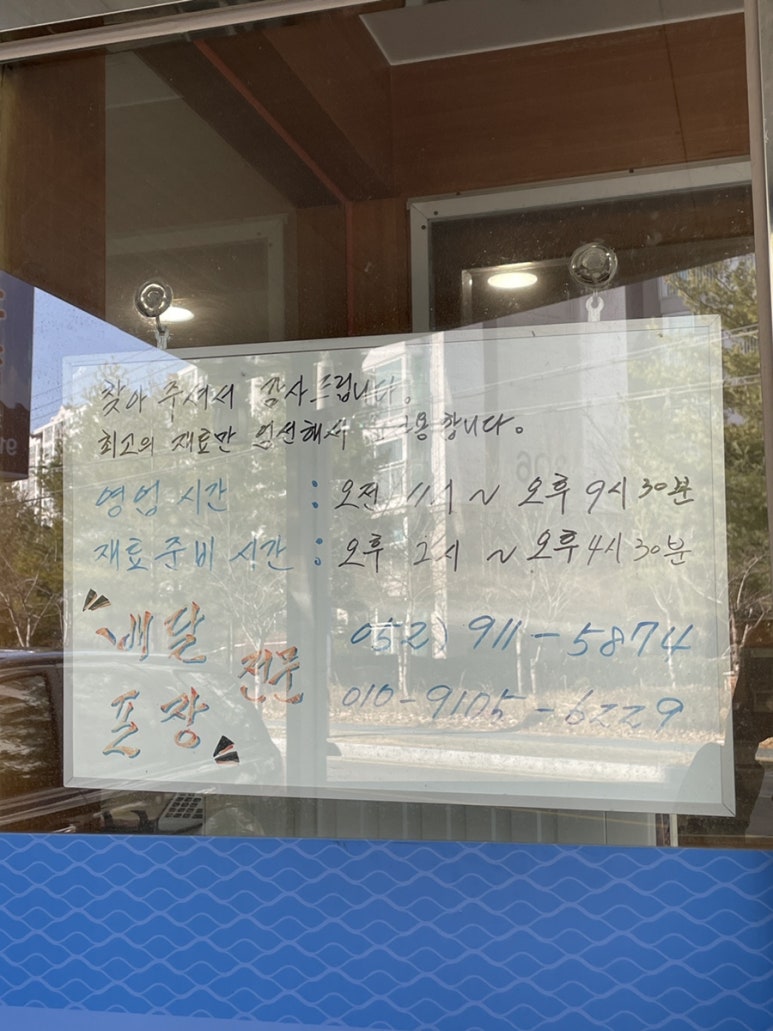 찾아 주셔서 감사드립니다.
최고의 재료만 엄선해서 사용합니다.
영업 시간 : 오전 11시 ~ 오후 9시 30분
재료준비 시간 : 오후 2시 ~ 오후 4시 30분
배달 포장 전문
052) 911-5874
010-9105-6229